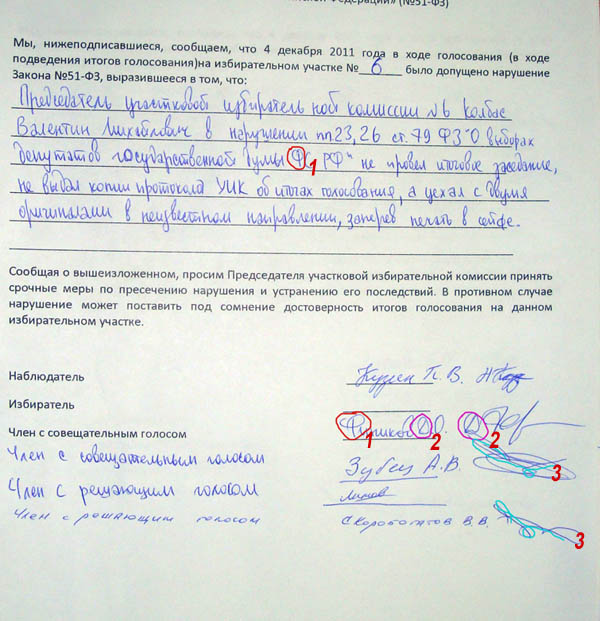 (№51-ФЗ)
Мы, нижеподписавшиеся, сообщаем, что 4 декабря 2011 года в ходе голосования (в ходе
подведения итогов голосования)на избирательном участке № 6 было допущено нарушение
Закона №51-ФЗ, выразившееся в том, что:
Председатель участковой избирательной комиссии №6 Колбас
Валентин Михайлович в нарушении пп.23, 26 ст. 79 ФЗ "О выборах
депутатов государственной Думы ФС РФ" не провел итоговое заседание,
не выдал копии протокола УИК об итогах голосования, а уехал с двумя
оригиналами в неизвестном направлении, заперев печать в сейфе.
1
Сообщая о вышеизложенном, просим Председателя участковой избирательной комиссии принять
срочные меры по пресечению нарушения и устранению его последствий. В противном случае
нарушение может поставить под сомнение достоверность итогов голосования на данном
избирательном участке.
Наблюдатель П. В.
Избиратель
Член с совещательным голосом
1 2 2
Член с совещательным голосом Зубец А.В.
3
Член с решающим голосом
Член с решающим голосом Скоробогатов В.В.
3